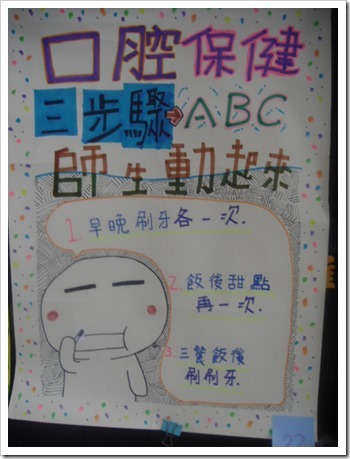 口腔保健
三步驟→ABC
師生動起來
1.早晚刷牙各一次.
2.飯後甜點
再一次.
3.三餐飯後
刷刷牙.
22